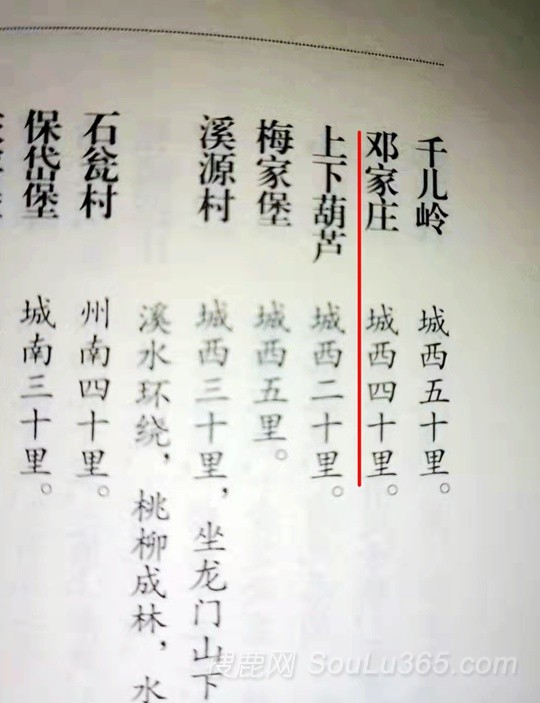 千儿岭 城西五十里。
邓家庄 城西四十里。
上下葫芦 城西二十里。
梅家堡 城西五里。
溪源村 城西三十里，坐龙门山下
溪水环绕，桃柳成林，水
石瓮村 州南四十里。
保岱堡 城南三十里。
搜鹿网 SouLu365.com